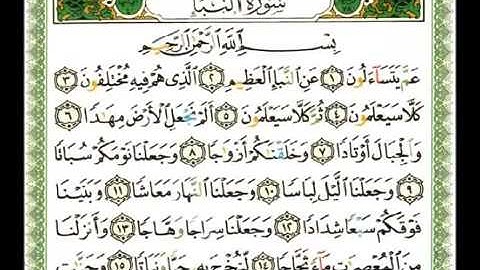 سورة النبإ
بسم الله الرحمن الرحيم
عَمَّ يَتَسَآءَلُونَ ۝١ عَنِ ٱلنَّبَإِ ٱلْعَظِيمِ ۝٢ ٱلَّذِى هُمْ فِيهِ مُخْتَلِفُونَ ۝٣
كَلَّا سَيَعْلَمُونَ ۝٤ ثُمَّ كَلَّا سَيَعْلَمُونَ ۝٥ أَلَمْ نَجْعَلِ ٱلْأَرْضَ مِهَٰدًا ۝٦
وَٱلْجِبَالَ أَوْتَادًا ۝٧ وَخَلَقْنَٰكُمْ أَزْوَٰجًا ۝٨ وَجَعَلْنَا نَوْمَكُمْ سُبَاتًا
۝٩ وَجَعَلْنَا ٱلَّيْلَ لِبَاسًا ۝١٠ وَجَعَلْنَا ٱلنَّهَارَ مَعَاشًا ۝١١ وَبَنَيْنَا
فَوْقَكُمْ سَبْعًا شِدَادًا ۝١٢ وَجَعَلْنَا سِرَاجًا وَهَّاجًا ۝١٣ وَأَنزَلْنَا
مِنَ ٱلْمُعْصِرَٰتِ مَآءً ثَجَّاجًا ۝١٤ لِّنُخْرِجَ بِهِۦ حَبًّا وَنَبَاتًا ۝١٥ وَجَنَّٰتٍ